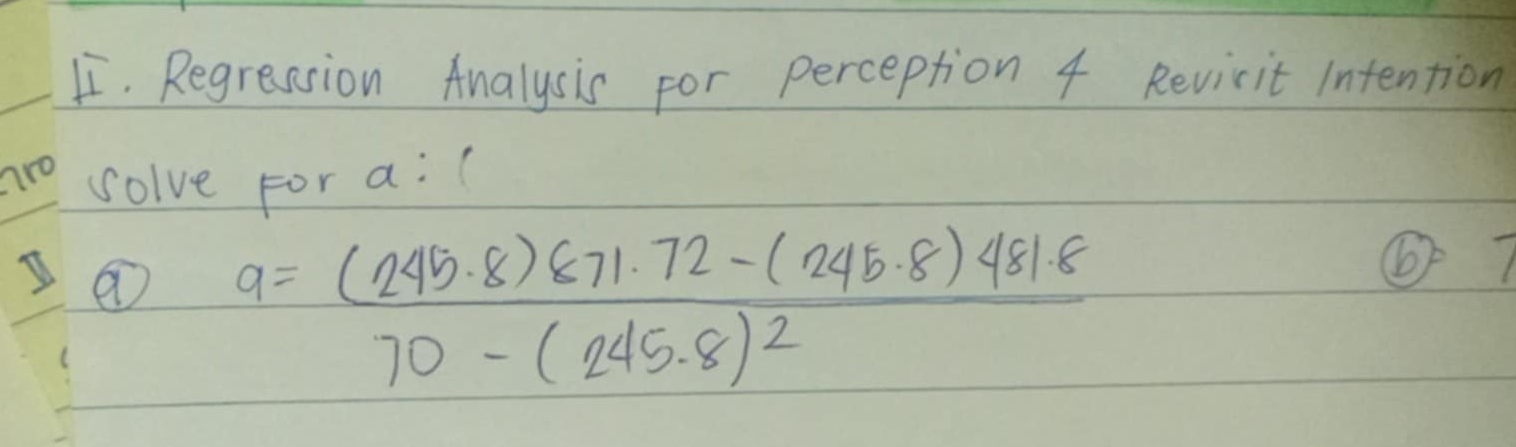 II. Regression Analysis for perception & Revisit Intention
solve for a: (
ⓐ a= (245.8)871.72-(245.8)481.8
70 - (245.8)²
ⓑ= 7